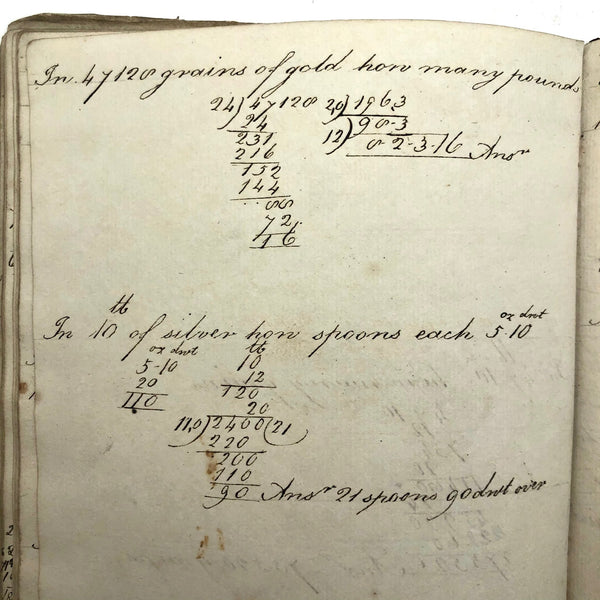 In 47128 grains of gold how many pounds
24) 47128 20) 1963
24 12) 98-3
231 8 2-3-16 Ansr
216
152
144
88
72
16
lb
oz dwt
In 10 of silver how spoons each 5-10
oz dwt lb
5-10 10
20 12
110 120
20
110) 2400 (21
220
200
110
90 Ansr 21 spoons 90 dwt over